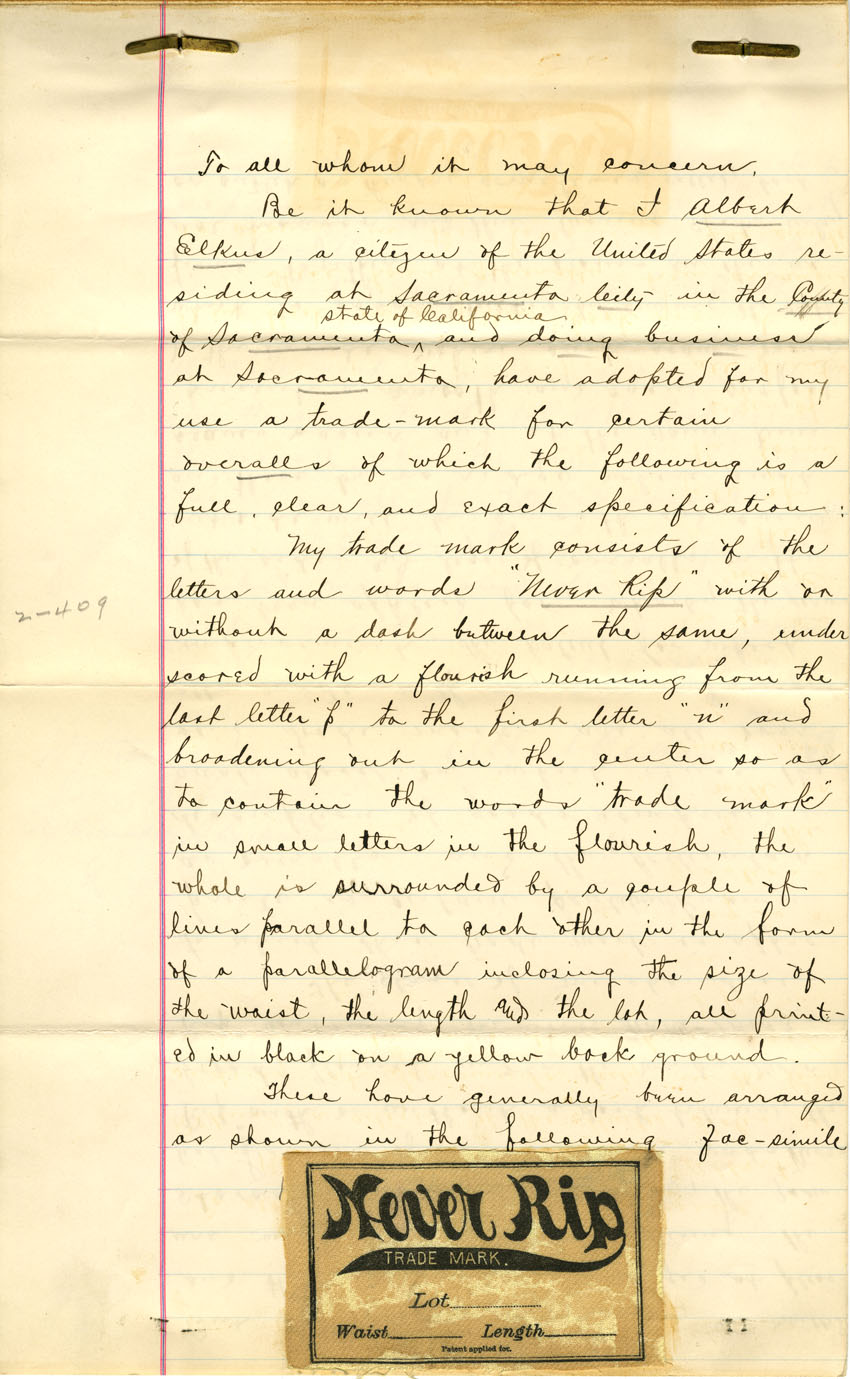 To all whom it may concern.
Be it known that I Albert
Elkus, a citizen of the United States re-
siding at Sacramento City in the County
state of California
of Sacramento, ‸ and doing business
at Sacramento, have adopted for my
use a trade-mark for certain
overalls of which the following is a
full, clear, and exact specification:
My trade mark consists of the
letters and words "Never Rip" with or
without a dash between the same, under
scored with a flourish running from the
last letter "p" to the first letter "n" and
broadening out in the center so as
to contain the words "trade mark"
in small letters in the flourish, the
whole is surrounded by a couple of
lines parallel to each other in the form
of a parallelogram inclosing the size of
the waist, the length and the lot, all print-
ed in black on a yellow back ground.
These have generally been arranged
as shown in the following fac-simile
2-409
Never Rip
TRADE MARK.
Lot
Waist Length
Patent applied for.